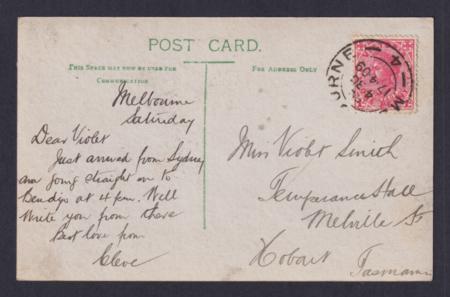 POST CARD.
THIS SPACE MAY NOW BE USED FOR
COMMUNICATION
FOR ADDRESS ONLY
Melbourne
Saturday
Dear Violet
Just arrived from Sydney
am going straight on to
Bendigo at 4 pm. Will
write you from there
Best love from
Cleve
Miss Violet Smith
Temperance Hall
Melville St
Hobart
Tasmania